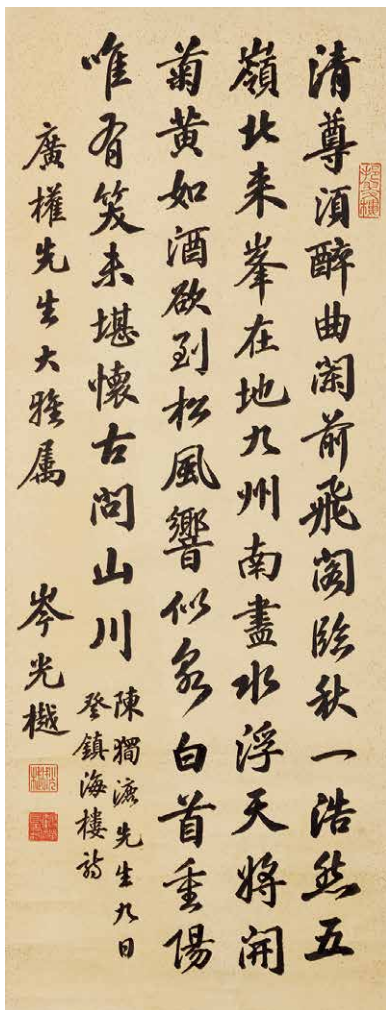 清尊須醉曲闌前飛閣臨秋一浩然五
嶺北来峯在地九州南盡水浮天將開
菊黄如酒欲到松風響似泉白首重陽
唯有笑未堪懷古問山川
陳獨漉先生九日
登鎮海樓詩
廣權先生大雅属
岑光樾